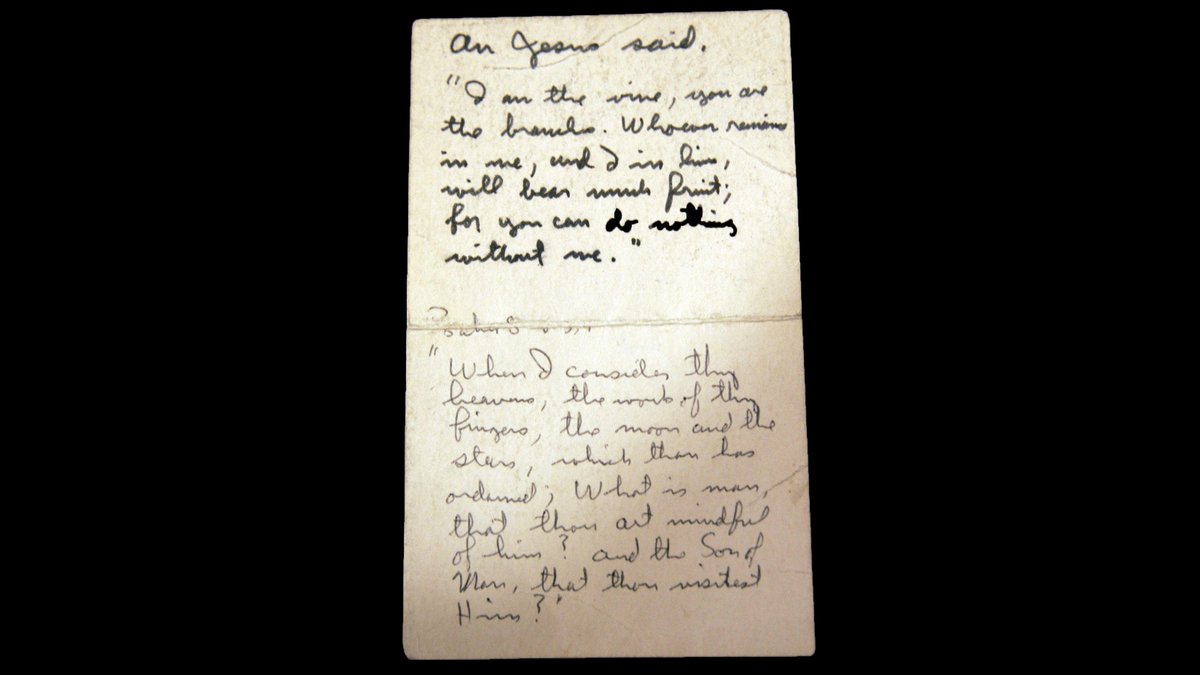 An Jesus said.
"I am the vine, you are
the branches. Whoever remains
in me, and I in him,
will bear much fruit;
for you can do nothing
without me."
Psalm 8 v 3,4
"When I consider thy
heavens, the work of thy
fingers, the moon and the
stars, which thou has
ordained; What is man,
that thou art mindful
of him? and the Son of
Man, that thou visitest
Him?"